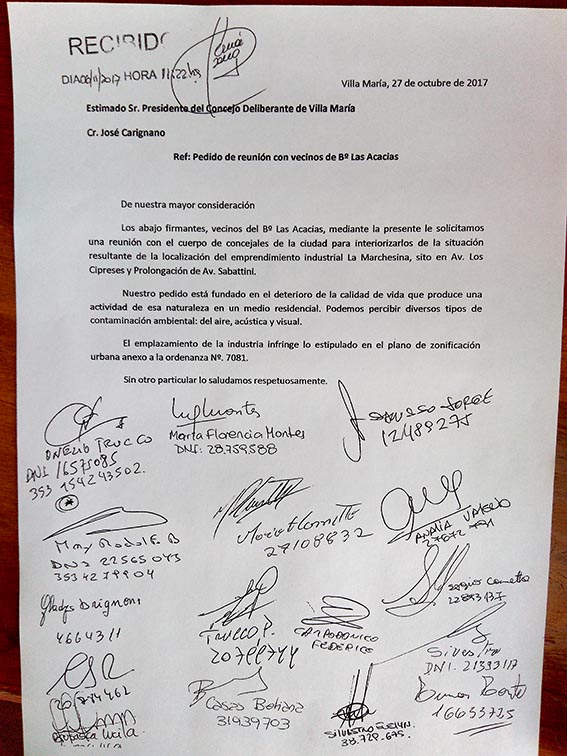 RECIBIDO
DIA 06/11/2017 HORA 11:22 hs
Villa María, 27 de octubre de 2017
Estimado Sr. Presidente del Concejo Deliberante de Villa María
Cr. José Carignano
Ref: Pedido de reunión con vecinos de Bº Las Acacias
De nuestra mayor consideración
Los abajo firmantes, vecinos del Bº Las Acacias, mediante la presente le solicitamos
una reunión con el cuerpo de concejales de la ciudad para interiorizarlos de la situación
resultante de la localización del emprendimiento industrial La Marchesina, sito en Av. Los
Cipreses y Prolongación de Av. Sabattini.
Nuestro pedido está fundado en el deterioro de la calidad de vida que produce una
actividad de esa naturaleza en un medio residencial. Podemos percibir diversos tipos de
contaminación ambiental: del aire, acústica y visual.
El emplazamiento de la industria infringe lo estipulado en el plano de zonificación
urbana anexo a la ordenanza Nº. 7081.
Sin otro particular lo saludamos respetuosamente.
ONELIO TRUCCO
DNI 16575085
353 154243502.
Marta Florencia Montes
DNI: 28.759.588
JORGE
12489275
DNI 22565043
3534279904
27108832
ANALIA VALERIO
27872791
Gladys Brignoni
4664311
TRUCCO P.
20788744
CAMPODONICO
FEDERICO
Sergio
22893137
DNI. 21333117
Casas Betiana
31939703
SILVESTRO
33.728.695.
16653725